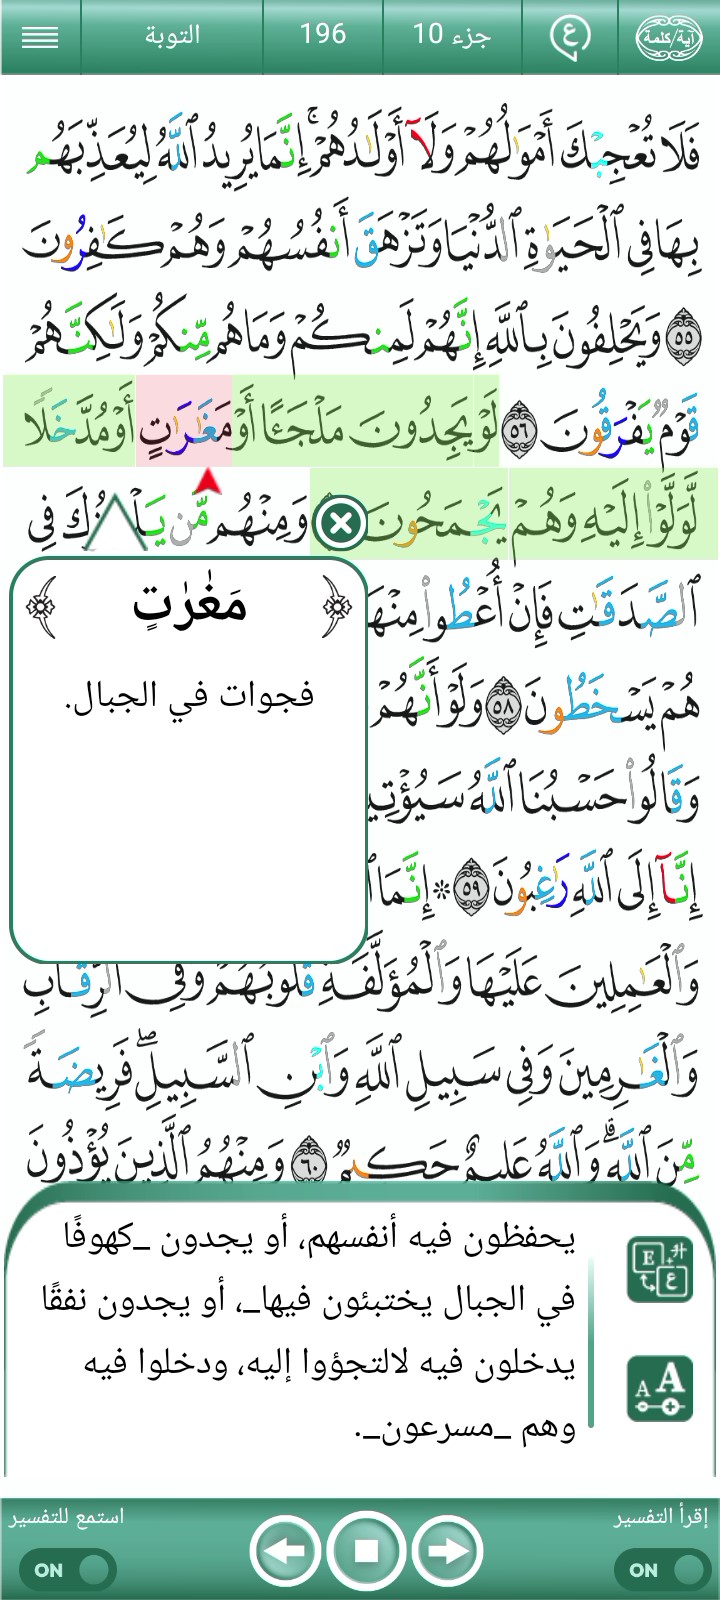 آية/كلمة
ع
جزء 10
196
التوبة
فَلَا تُعْجِبْكَ أَمْوَٰلُهُمْ وَلَآ أَوْلَٰدُهُمْ ۚ إِنَّمَا يُرِيدُ ٱللَّهُ لِيُعَذِّبَهُم
بِهَا فِى ٱلْحَيَوٰةِ ٱلدُّنْيَا وَتَزْهَقَ أَنفُسُهُمْ وَهُمْ كَٰفِرُونَ
٥٥ وَيَحْلِفُونَ بِٱللَّهِ إِنَّهُمْ لَمِنكُمْ وَمَا هُم مِّنكُمْ وَلَٰكِنَّهُمْ
قَوْمٌ يَفْرَقُونَ ٥٦ لَوْ يَجِدُونَ مَلْجَـًٔا أَوْ مَغَٰرَٰتٍ أَوْ مُدَّخَلًا
لَّوَلَّوْا۟ إِلَيْهِ وَهُمْ يَجْمَحُونَ وَمِنْهُم مَّن فِى
ٱلصَّدَقَٰتِ فَإِنْ أُعْطُوا۟ مِنْهَا
هُمْ يَسْخَطُونَ ٥٨ وَلَوْ أَنَّهُمْ
وَقَالُوا۟ حَسْبُنَا ٱللَّهُ
إِنَّآ إِلَى ٱللَّهِ رَٰغِبُونَ ٥٩ ۞ إِنَّمَا
وَٱلْعَٰمِلِينَ عَلَيْهَا وَٱلْمُؤَلَّفَةِ قُلُوبُهُمْ وَفِى ٱلرِّقَابِ
وَٱلْغَٰرِمِينَ وَفِى سَبِيلِ ٱللَّهِ وَٱبْنِ ٱلسَّبِيلِ ۖ فَرِيضَةً
مِّنَ ٱللَّهِ ۗ وَٱللَّهُ عَلِيمٌ حَكِيمٌ ٦٠ وَمِنْهُمُ ٱلَّذِينَ يُؤْذُونَ
مَغَٰرَٰتٍ
فجوات في الجبال.
يحفظون فيه أنفسهم، أو يجدون _كهوفًا
في الجبال يختبئون فيها_، أو يجدون نفقًا
يدخلون فيه لالتجؤوا إليه، ودخلوا فيه
وهم _مسرعون_.
E
ع
A A
إقرأ التفسير
ON
استمع للتفسير
ON